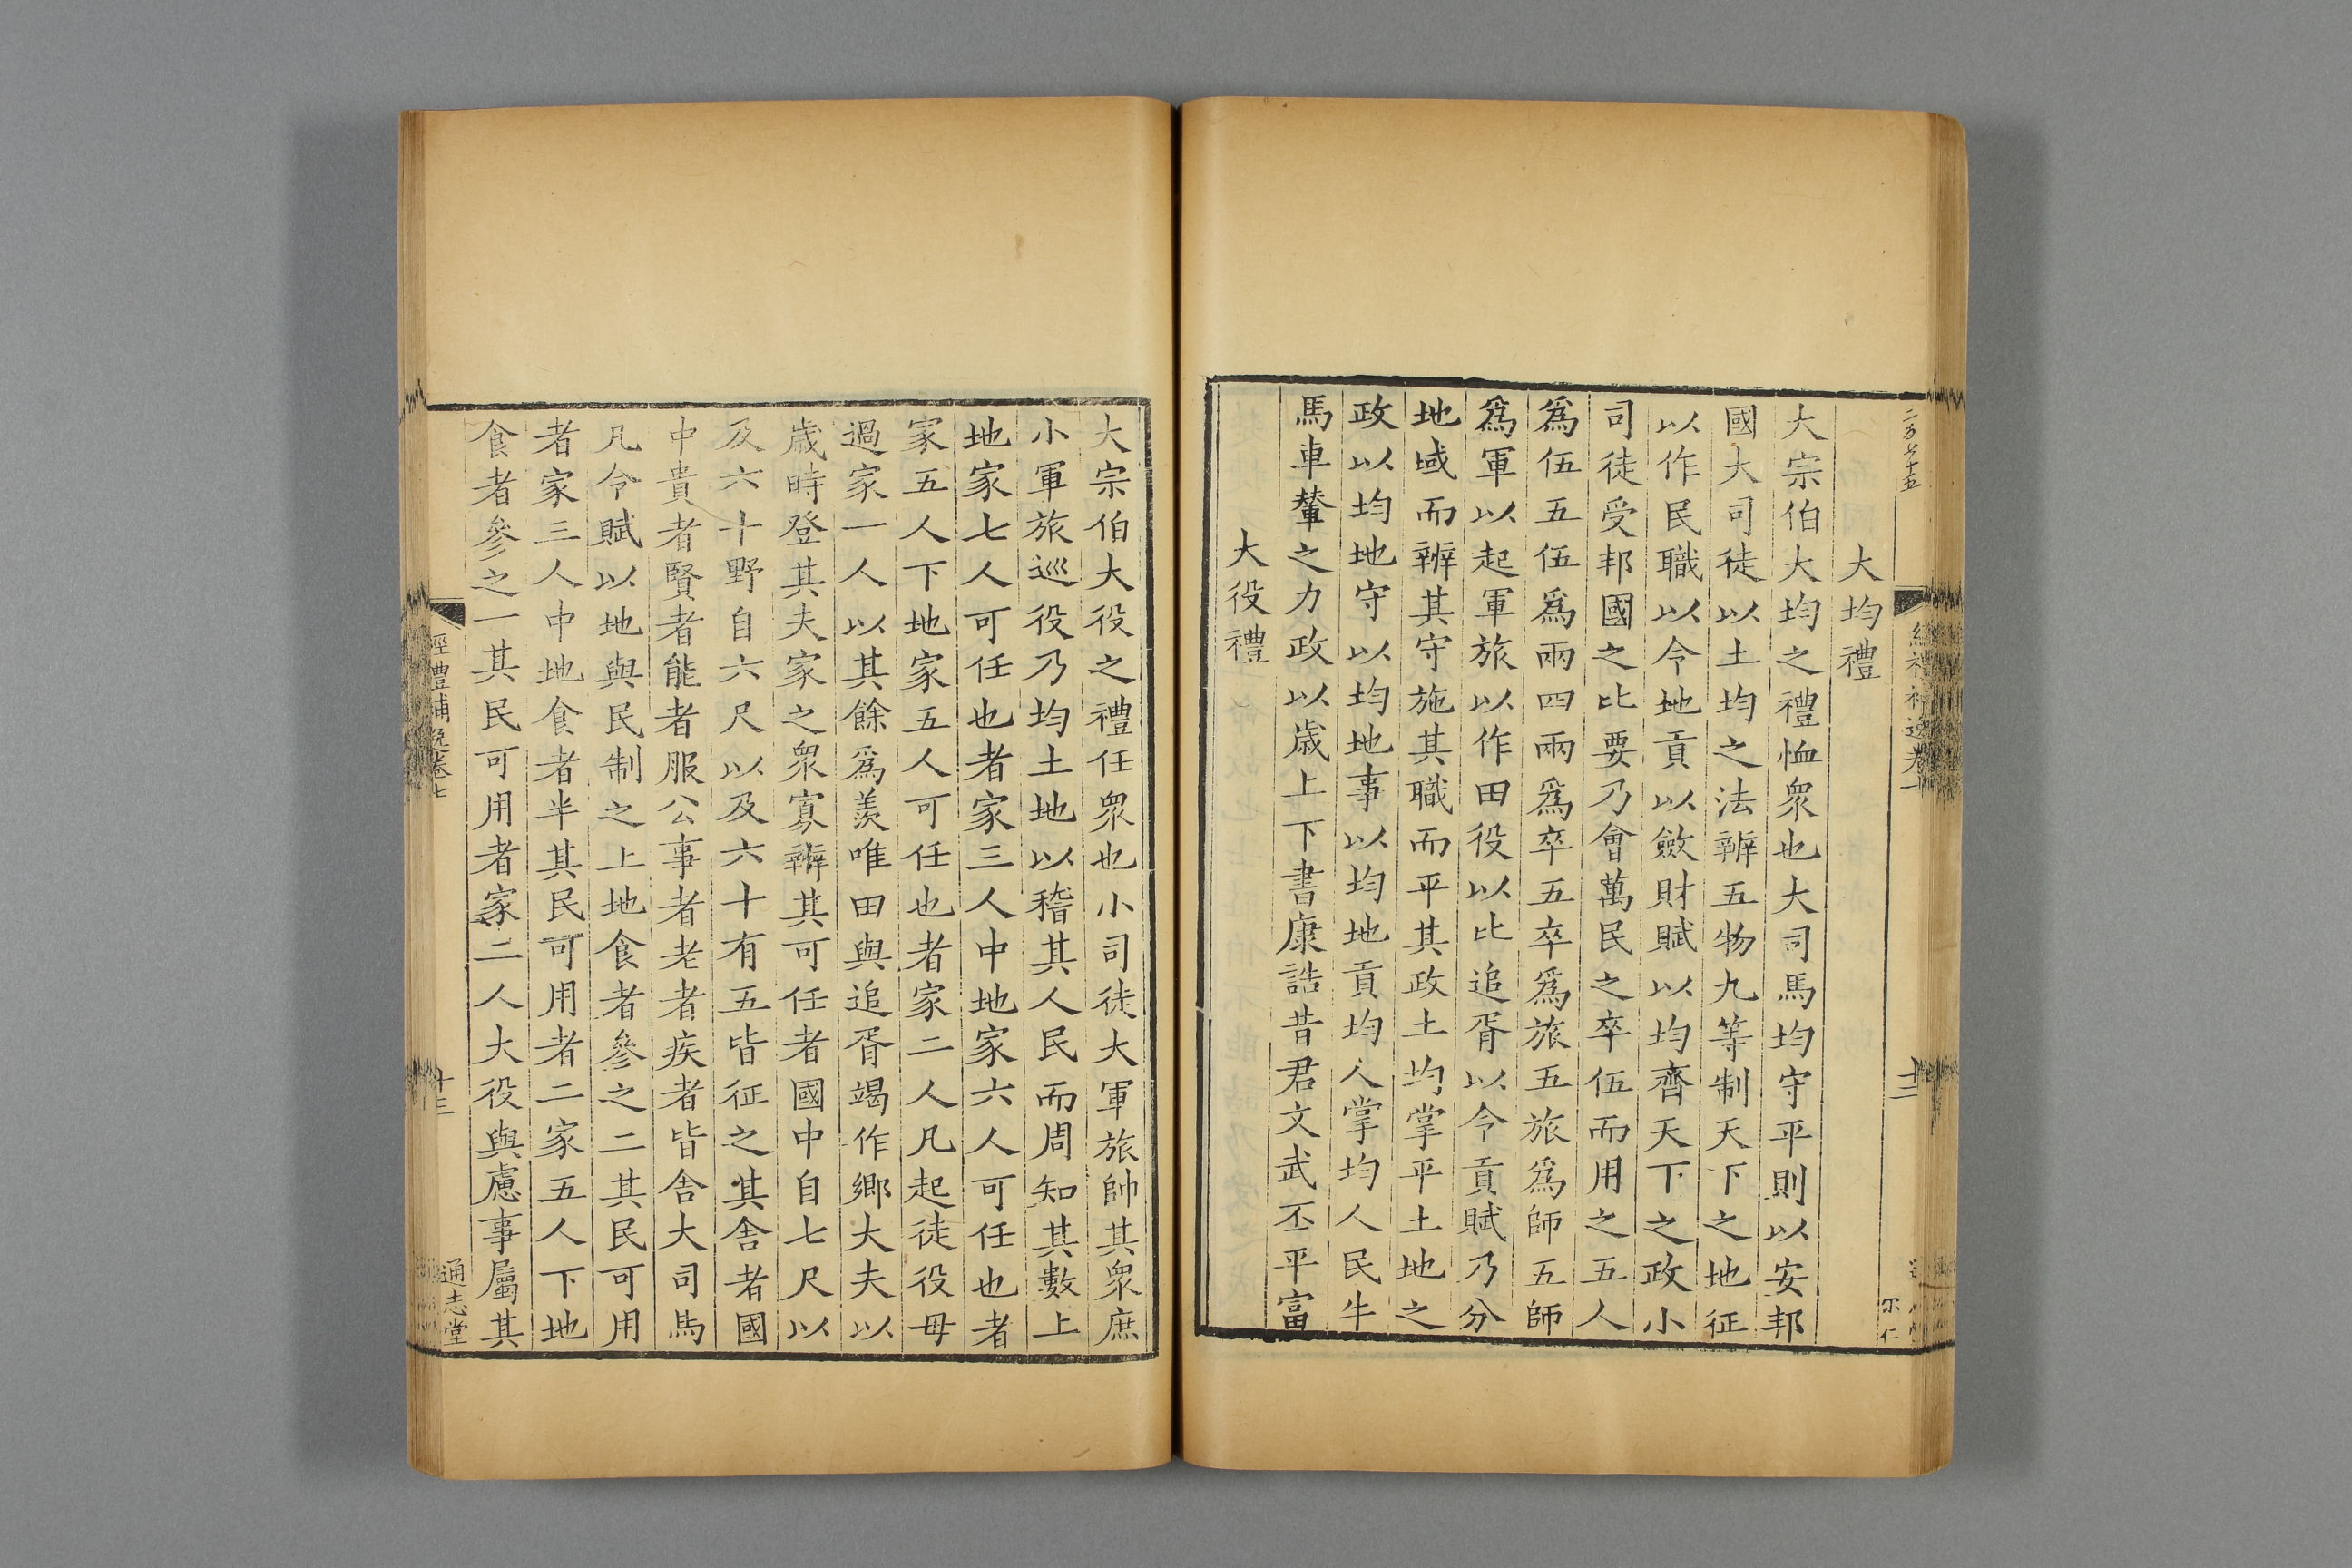 大均禮
大宗伯大均之禮恤衆也大司馬均守平則以安邦
國大司徒以土均之法辨五物九等制天下之地征
以作民職以令地貢以斂財賦以均齊天下之政小
司徒受邦國之比要乃會萬民之卒伍而用之五人
爲伍五伍爲兩四兩爲卒五卒爲旅五旅爲師五師
爲軍以起軍旅以作田役以比追胥以令貢賦乃分
地域而辨其守施其職而平其政土均掌平土地之
政以均地守以均地事以均地貢均人掌均人民牛
馬車輦之力政以歲上下書康誥昔君文武丕平富
大役禮
大宗伯大役之禮任衆也小司徒大軍旅帥其衆庶
小軍旅巡役乃均土地以稽其人民而周知其數上
地家七人可任也者家三人中地家六人可任也者
家五人下地家五人可任也者家二人凡起徒役毋
過家一人以其餘爲羨唯田與追胥竭作鄉大夫以
歲時登其夫家之衆寡辨其可任者國中自七尺以
及六十野自六尺以及六十有五皆征之其舍者國
中貴者賢者能者服公事者老者疾者皆舍大司馬
凡令賦以地與民制之上地食者參之二其民可用
者家三人中地食者半其民可用者二家五人下地
食者參之一其民可用者家二人大役與慮事屬其
經禮補逸卷七
十三
通志堂